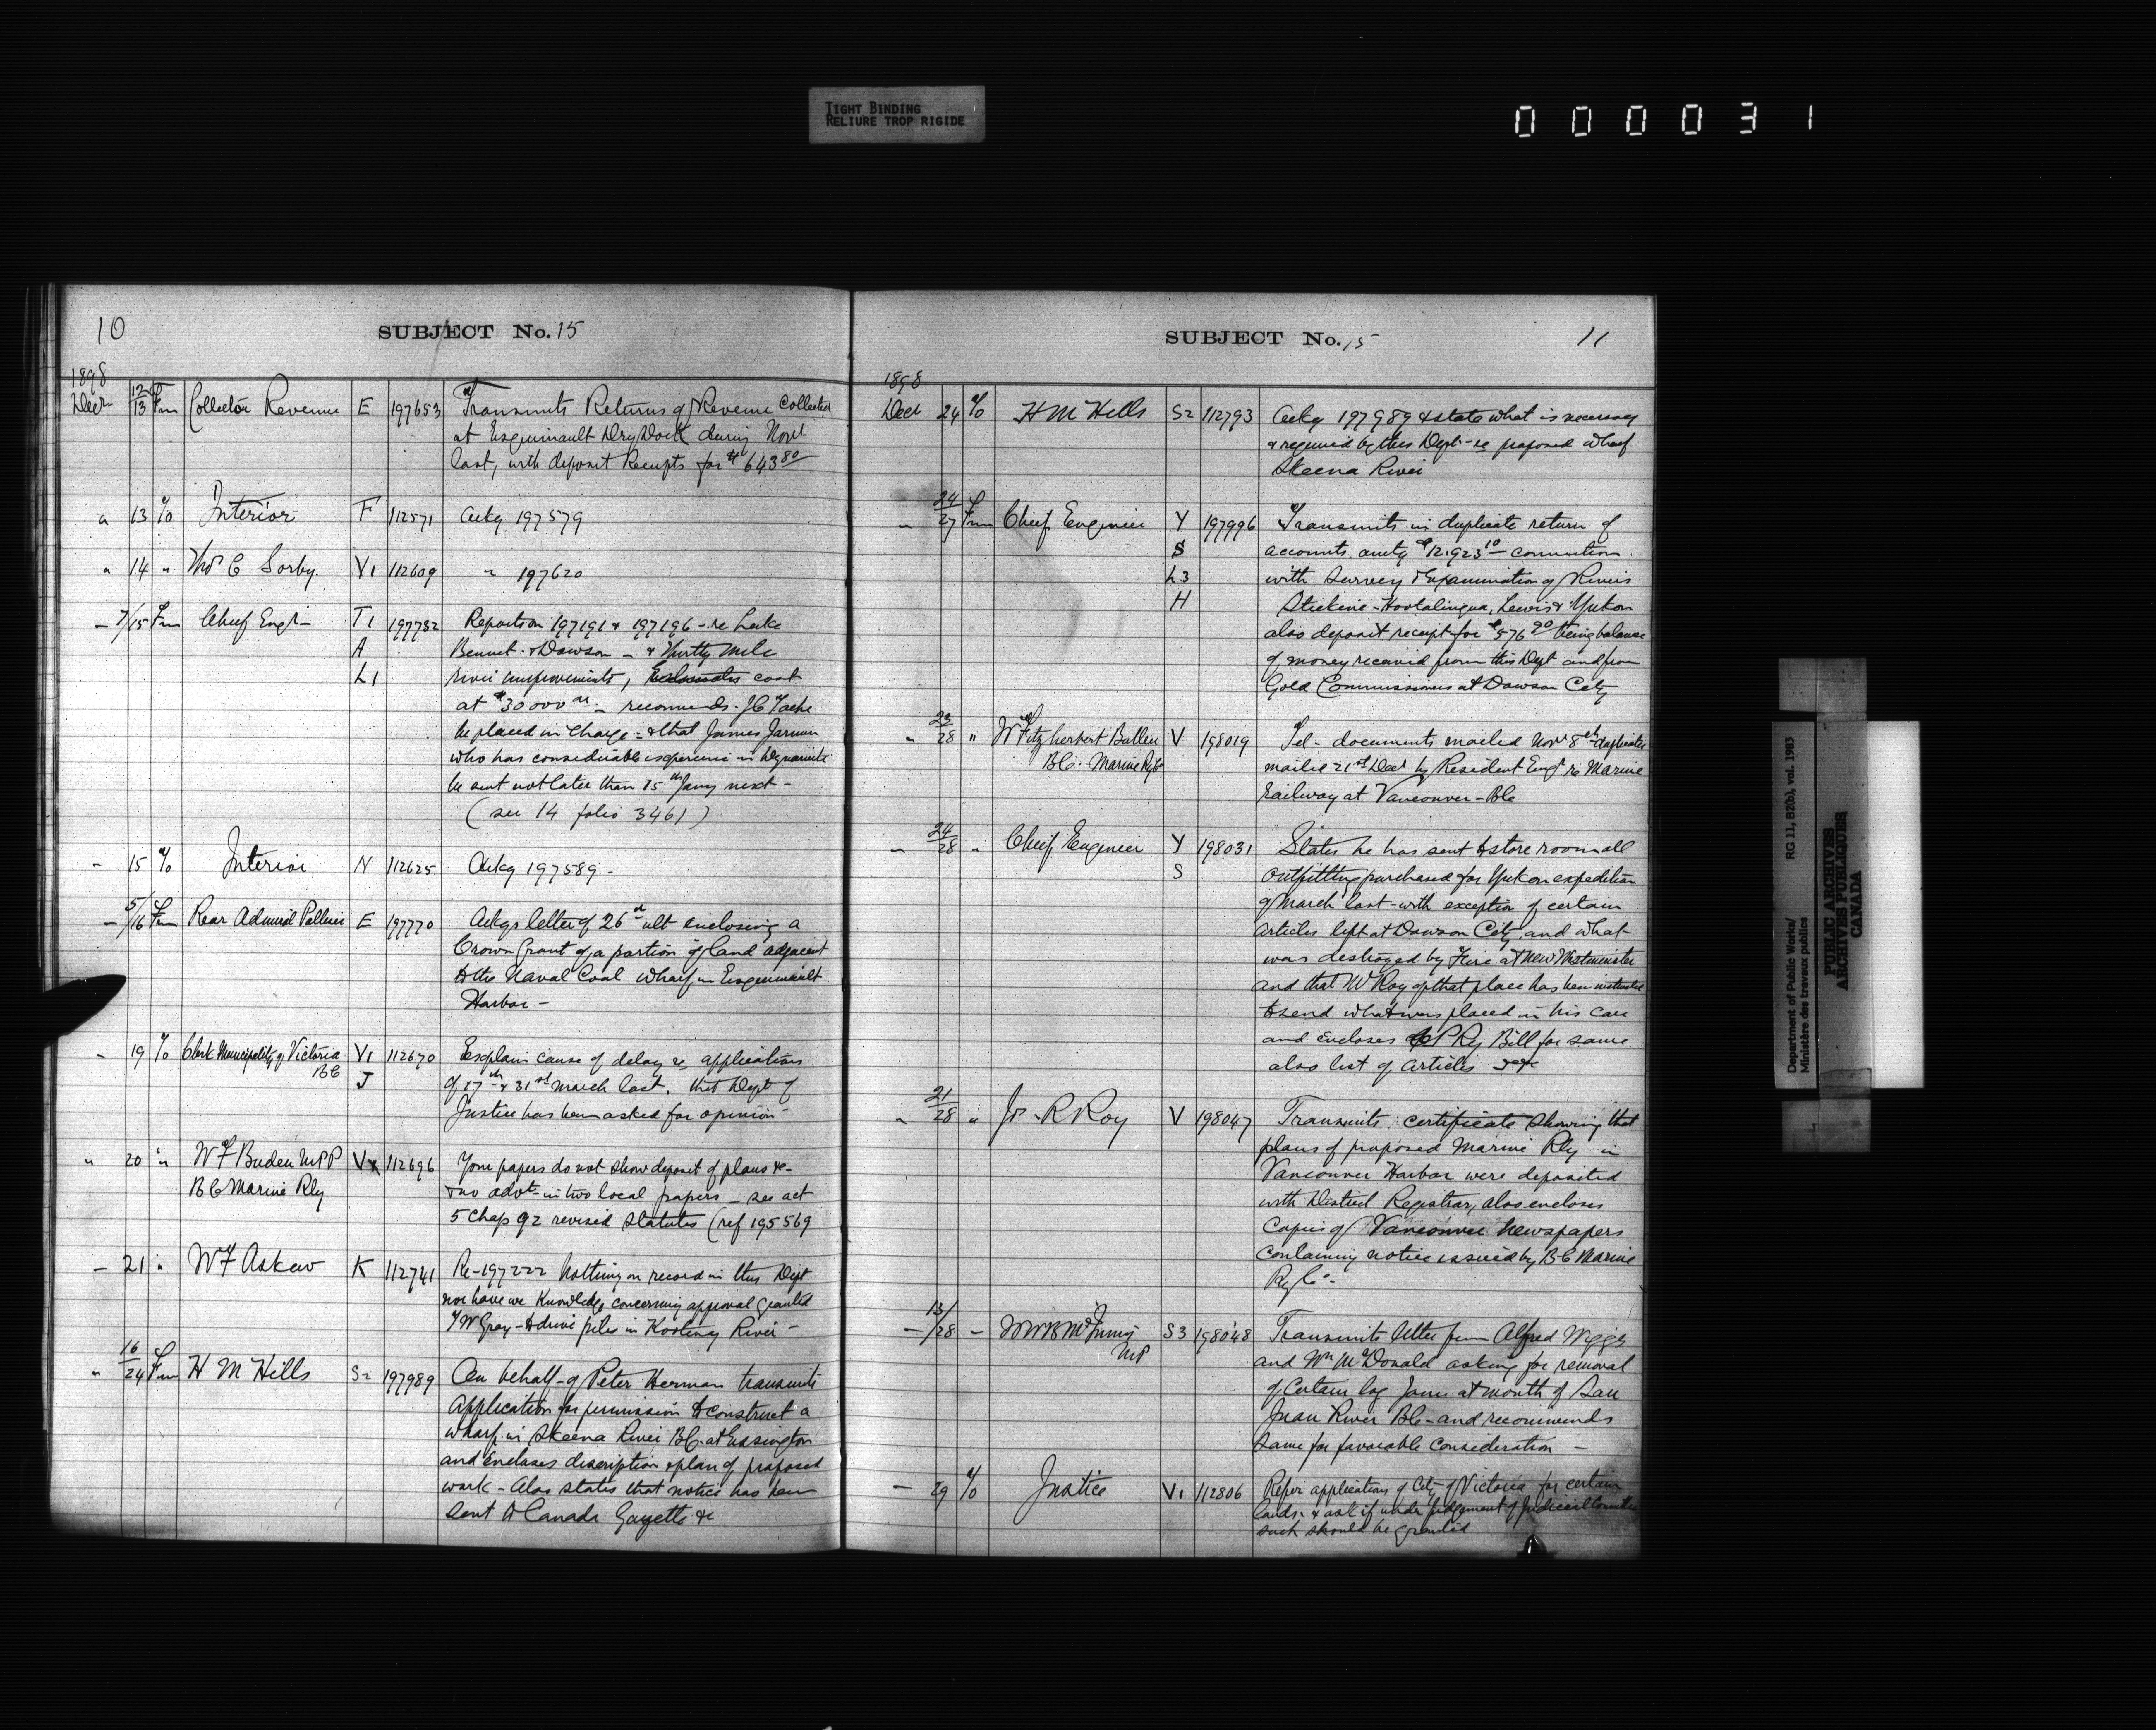 TIGHT BINDING
RELIURE TROP RIGIDE
000031
10
SUBJECT No. 15
1898
Decr 12/13 Frm Collector Revenue E 197653 Transmits Returns of Revenue Collected
at Esquimault Dry Dock during Novr
last, with deposit Receipts for $643 80
" 13 To Interior F 112571 Ackg 197579
" 14 " Thos C Sorby V1 112609 " 197620
- 7/15 Frm Chief Engr T1 197732 Reports on 197191 & 197196 - re Lake
A Bennet & Dawson - & Thirty Mile
L1 river improvements, Estimates cost
at $30000 00 - recommends J C Tache
be placed in Charge - & that James Jarmin
who has considerable experience in Dynamite
be sent not later than 15th Jany next -
(see 14 folio 3461)
- 15 To Interior N 112625 Ackg 197589 -
- 5/16 Frm Rear Admiral Palliser E 197770 Ackgs letter of 26th ult enclosing a
Crown Grant of a portion of land adjacent
to the Naval Coal Wharf in Esquimault
Harbor -
- 19 To Clerk Municipality of Victoria V1 112670 Explain cause of delay re application
BC J of 17th & 31st March last. that Dept of
Justice has been asked for opinion -
" 20 " W F Boden MPP V 112696 Your papers do not show deposit of plans &c -
BC Marine Rly & no advt - in two local papers - see act
5 Chap 92 revised Statutes (ref 195569
- 21 " W F Askew K 112741 Re - 197222 Nothing on record in this Dept
nor have we Knowledge concerning approval granted
J W Gray - to drive piles in Kootenay River -
" 16/24 Frm H M Hills S2 197989 On behalf of Peter Herman transmits
Application for permission to construct a
wharf in Skeena River BC at Essington
and Encloses description & plan of proposed
work - Also states that notice has been
Sent to Canada Gazette &c
SUBJECT No. 15
11
1898
Decr 24 To H M Hills S2 112793 Ackg 197989 & state what is necessary
& required by this Dept - re proposed wharf
Skeena River
" 24/27 Frm Chief Engineer Y 197996 Transmits in duplicate return of
S accounts amtg $12,923 10 - connection
L3 with Survey & Examination of Rivers
H Stickine - Hootalinqua, Lewis & Yukon
also deposit receipt for $576 90 being balance
of money received from this Dept and from
Gold Commissioner at Dawson City
" 23/28 " W Fitzherbert Bullen V 198019 Tel - documents mailed Novr 8th duplicates
BC Marine Ry Co mailed 21st Decr by Resident Engr re Marine
Railway at Vancouver - BC
- 24/28 " Chief Engineer Y 198031 States he has sent to store room all
S outfitting purchased for Yukon expedition
of March last - with exception of certain
articles left at Dawson City, and what
was destroyed by Fire at New Westminster
and that Mr Roy of that place has been instructed
to send what was placed in his care
and encloses CP Ry Bill for same
also list of articles &c &c
" 21/28 " J R Roy V 198047 Transmits certificate showing that
plans of proposed Marine Rly in
Vancouver Harbor were deposited
with District Registrar, also encloses
Copies of Vancouver Newspapers
Containing notice issued by BC Marine
Ry Co -
- 13/28 - W W B McInnis S3 198048 Transmits letter from Alfred Wiggs
MP and Wm McDonald asking for removal
of Certain log Jams at mouth of San
Juan River BC - and recommends
Same for favorable Consideration -
- 29 To Justice V1 112806 Refer application of City of Victoria for certain
lands & ask if under judgement of Judicial Committee
such should be granted
Department of Public Works/
Ministère des travaux publics
RG 11, B2(b), vol. 1983
PUBLIC ARCHIVES
ARCHIVES PUBLIQUES
CANADA